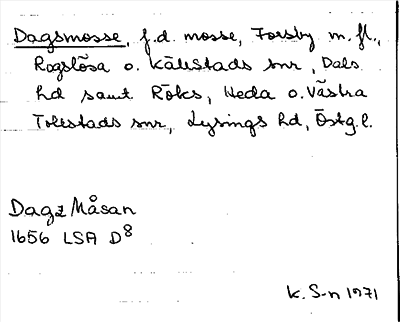 Dagsmosse, f.d. mosse, Forsby m.fl.,
Rogslösa o. Källstads snr, Dals
hd samt Röks, Heda o. Västra
Tollstads snr, Lysings hd, Östg.l.
Dagz Måsan
1656 LSA D8
K. S-n 1971